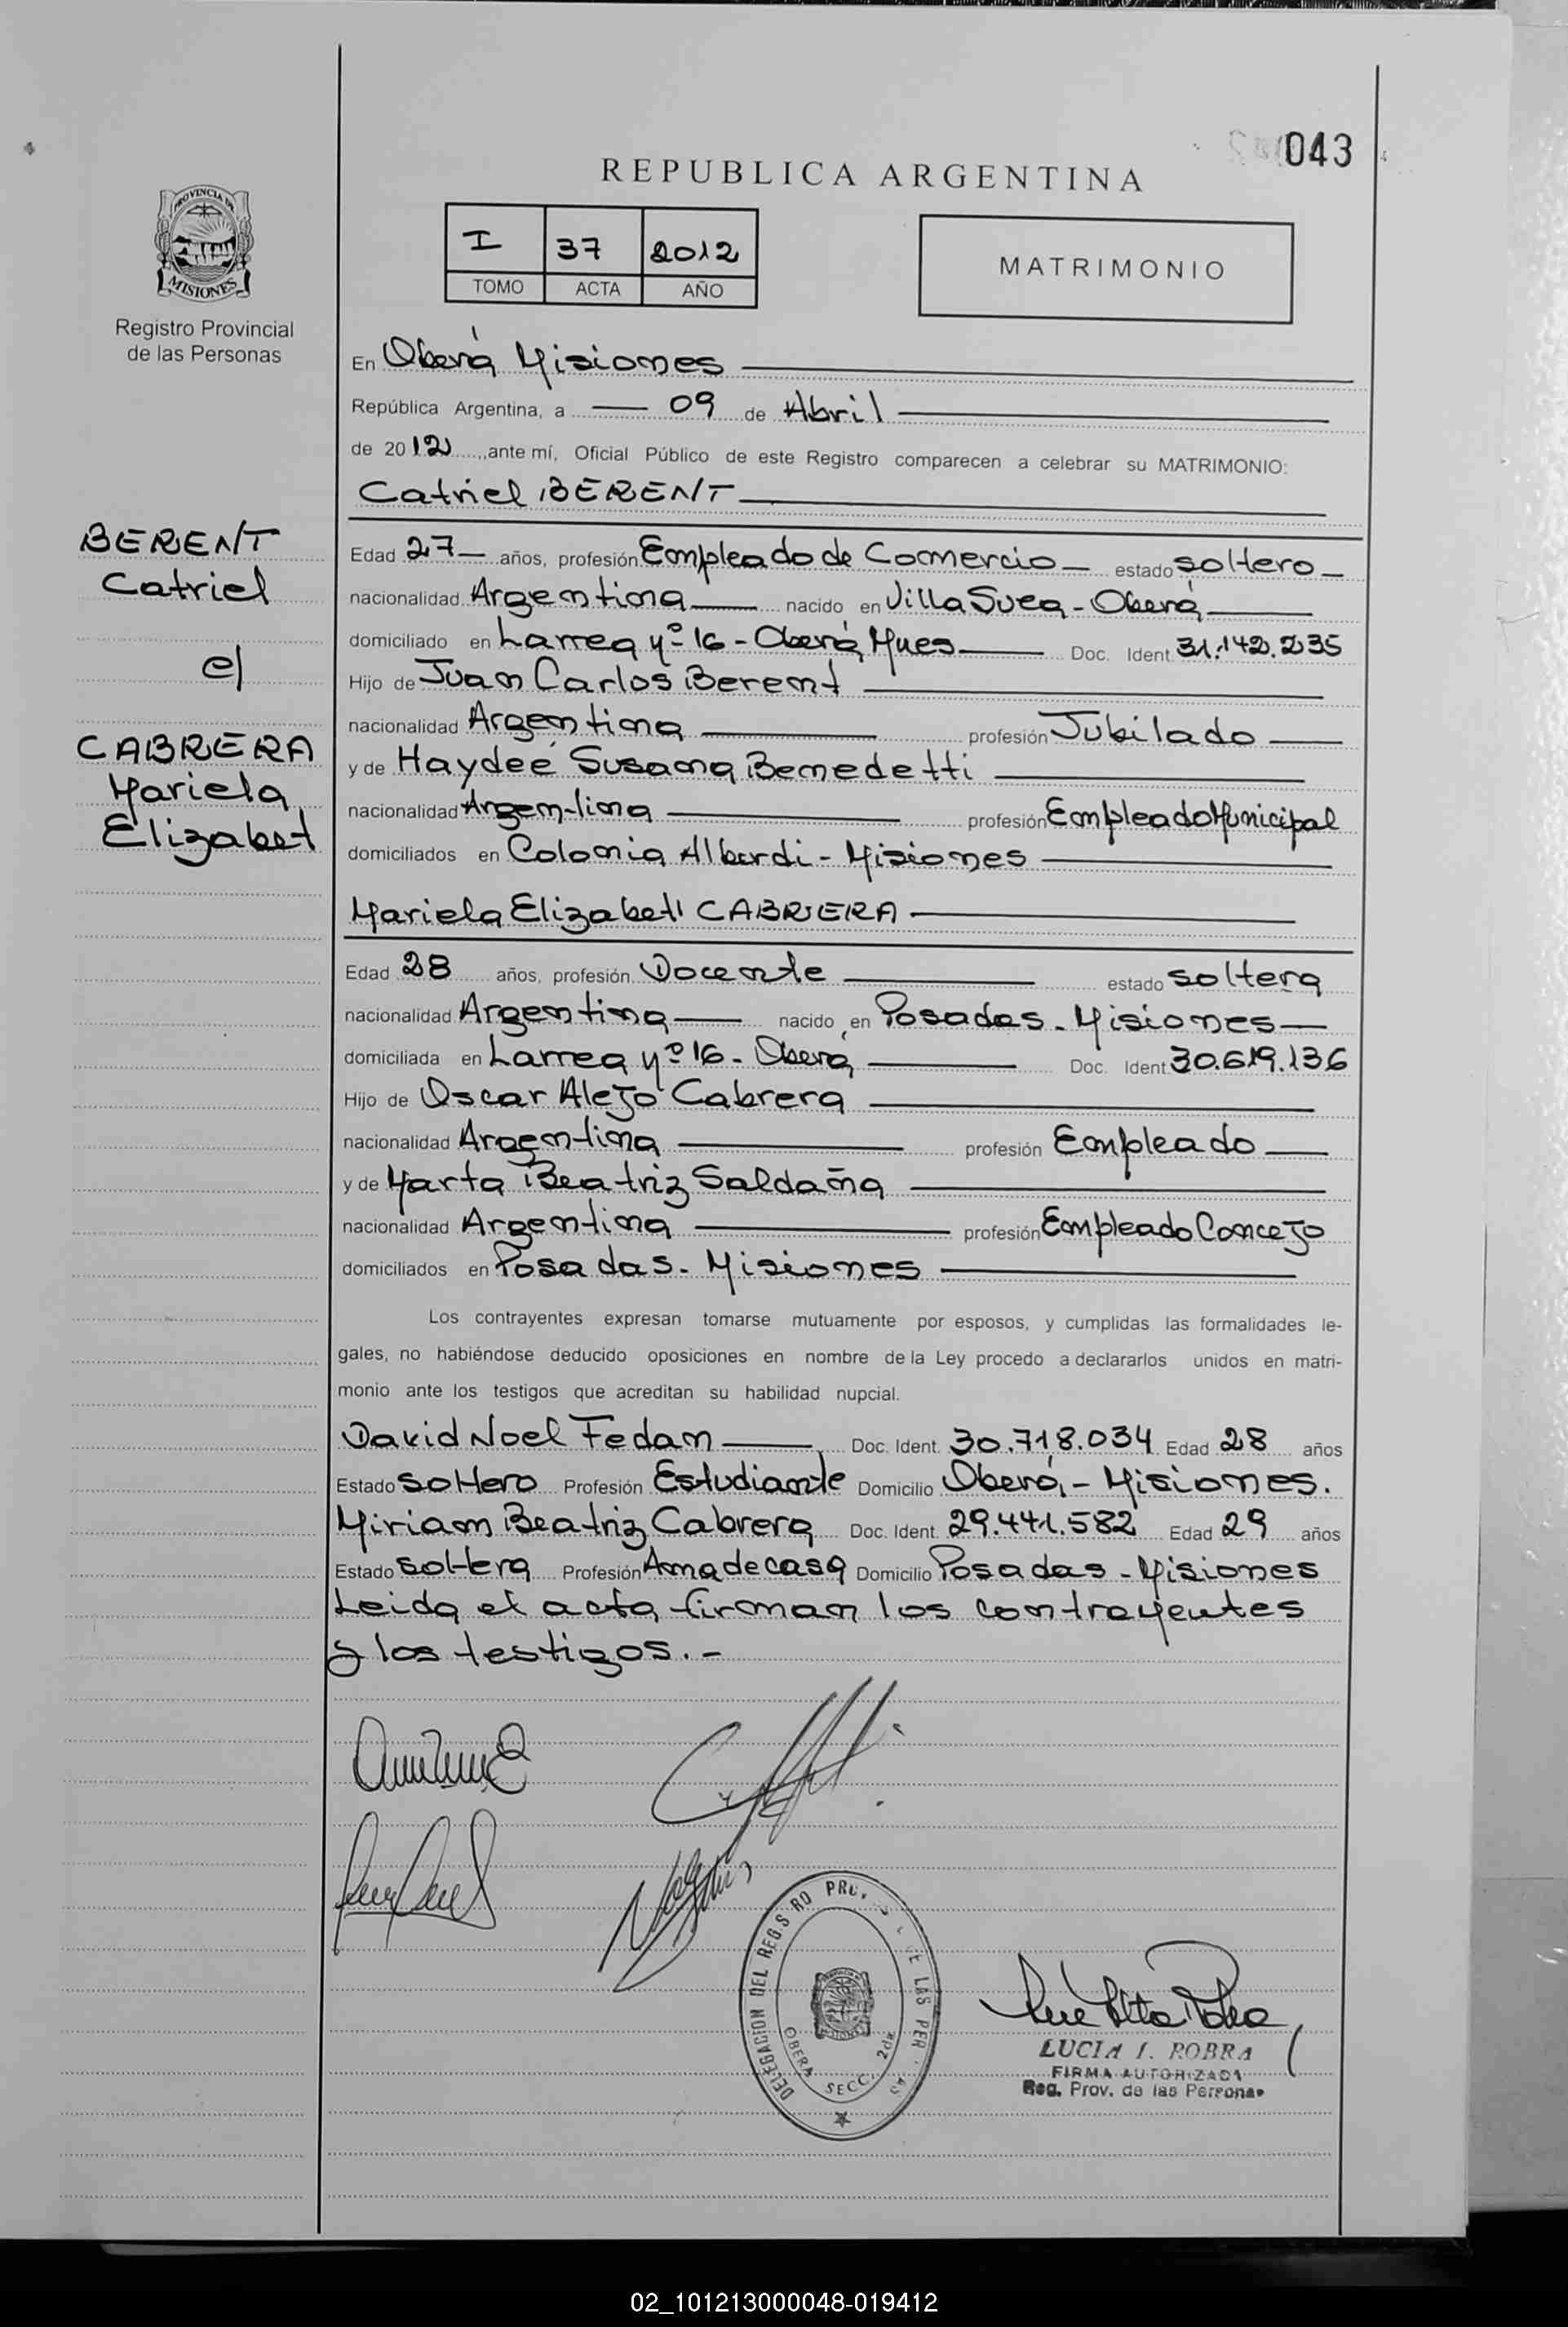 043
REPUBLICA ARGENTINA
I 37 2012
TOMO ACTA AÑO
MATRIMONIO
PROVINCIA DE
MISIONES
Registro Provincial
de las Personas
En Oberá Misiones
República Argentina, a 09 de Abril
de 2012, ante mí, Oficial Público de este Registro comparecen a celebrar su MATRIMONIO:
Catriel BERENT
BERENT
Catriel
c/
CABRERA
Mariela
Elizabet
Edad 27 años, profesión Empleado de Comercio estado soltero
nacionalidad Argentina nacido en Villa Svea - Oberá
domiciliado en Larrea Nº 16 - Oberá Mnes Doc. Ident. 31.142.235
Hijo de Juan Carlos Berent
nacionalidad Argentina profesión Jubilado
y de Haydeé Susana Benedetti
nacionalidad Argentina profesión Empleado Municipal
domiciliados en Colonia Alberdi - Misiones
Mariela Elizabet CABRERA
Edad 28 años, profesión Docente estado soltera
nacionalidad Argentina nacido en Posadas - Misiones
domiciliada en Larrea Nº 16 - Oberá Doc. Ident. 30.619.136
Hijo de Oscar Alejo Cabrera
nacionalidad Argentina profesión Empleado
y de Marta Beatriz Saldaña
nacionalidad Argentina profesión Empleado Concejo
domiciliados en Posadas - Misiones
Los contrayentes expresan tomarse mutuamente por esposos, y cumplidas las formalidades le-
gales, no habiéndose deducido oposiciones en nombre de la Ley procedo a declararlos unidos en matri-
monio ante los testigos que acreditan su habilidad nupcial.
David Noel Fedan Doc. Ident. 30.718.034 Edad 28 años
Estado soltero Profesión Estudiante Domicilio Oberá - Misiones.
Miriam Beatriz Cabrera Doc. Ident. 29.441.582 Edad 29 años
Estado soltera Profesión Ama de casa Domicilio Posadas - Misiones
Leida el acta firman los contrayentes
y los testigos.-
DELEGACION DEL REGISTRO PROV. DE LAS PER
OBERA SECC. 2da.
LUCIA I. ROBRA
FIRMA AUTORIZADA
Reg. Prov. de las Personas
02_101213000048-019412